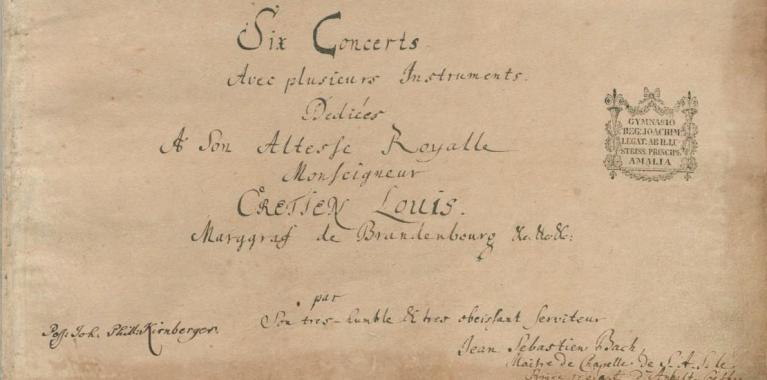 Six Concerts
Avec plusieurs Instruments.
Dediées
A Son Altesse Royalle
Monseigneur
CRETIEN LOUIS.
Marggraf de Brandenbourg &c. &c. &c:
par
Son tres-humble & tres obeissant serviteur
Jean Sebastien Bach,
Maitre de Chapelle de S. A. S. le
Prince regnant d'Anhalt
Poss: Joh. Phill: Kirnberger.
GYMNASIO
REG. JOACHIM.
LEGAT. AB ILLU
STRISS. PRINCIPE
AMALIA